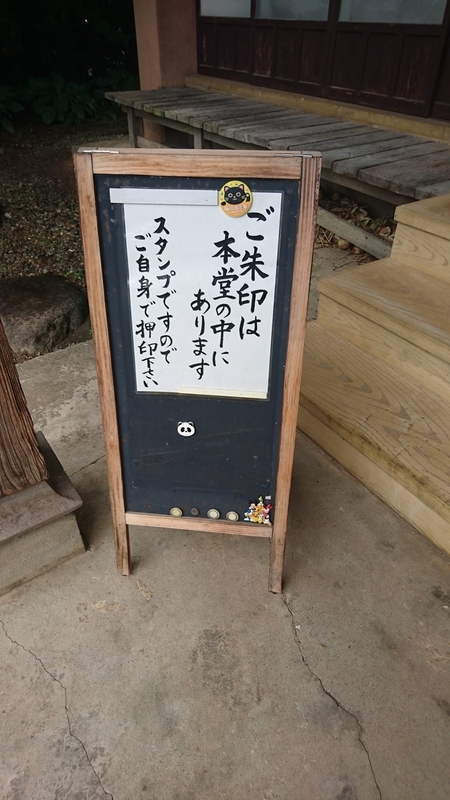 ご朱印は
本堂の中に
あります
スタンプですので
ご自身で押印下さい